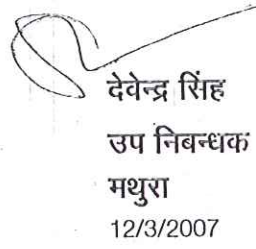 देवेन्द्र सिंह
उप निबन्धक
मथुरा
12/3/2007